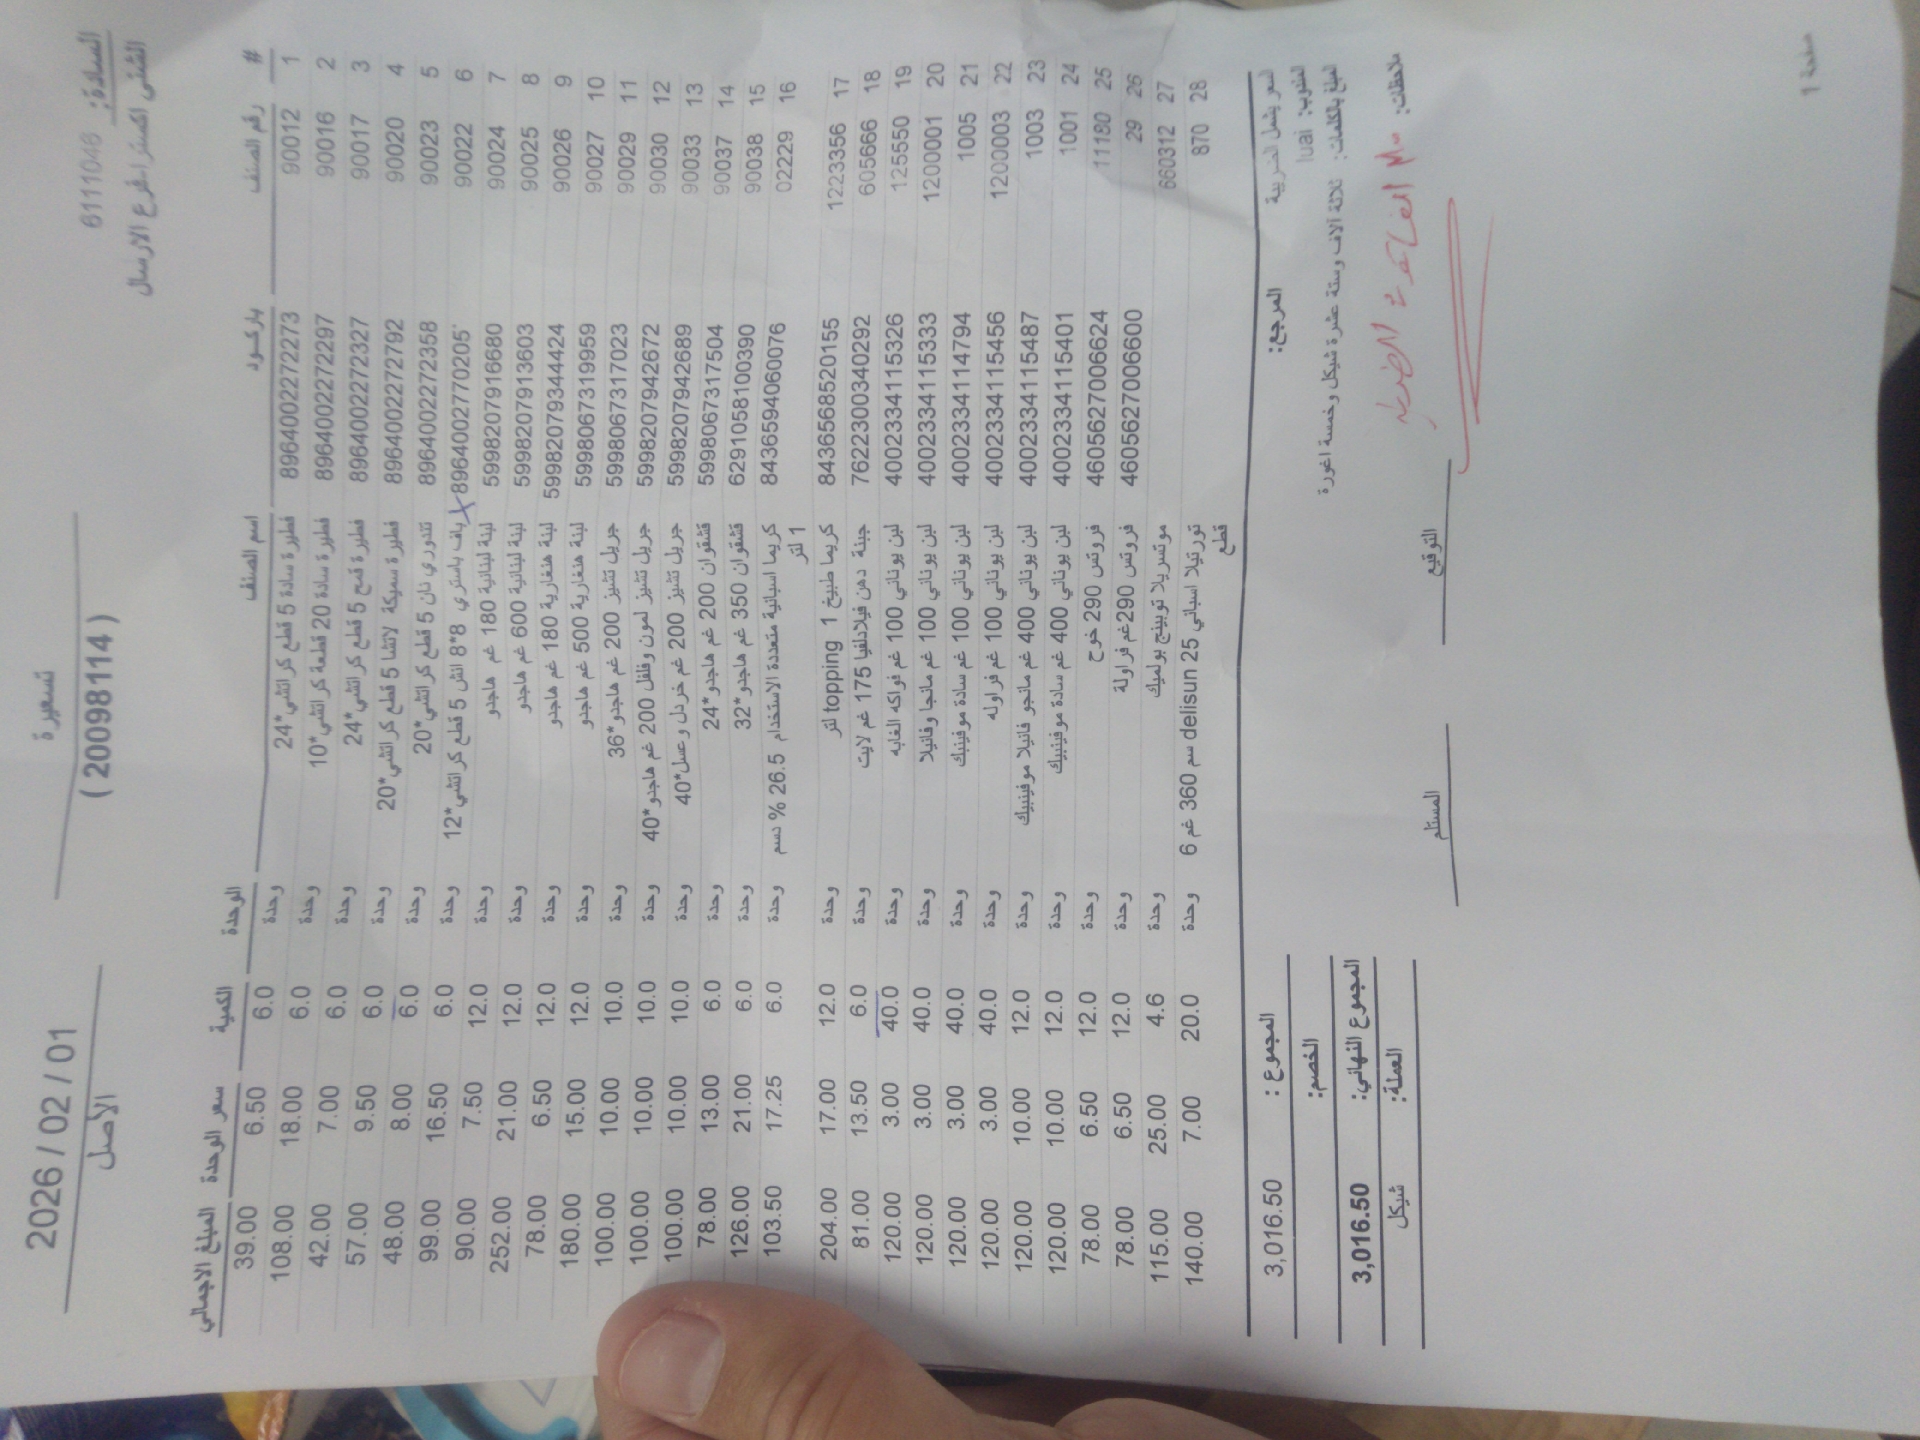 السادة: 6111046
الشني اكسترا فرع الارسال
تسعيرة
( 20098114 )
2026 / 02 / 01
الأصل
# رقم الصنف باركود اسم الصنف الوحدة الكمية سعر الوحدة المبلغ الاجمالي
1 90012 8964002272273 فطيرة سادة 5 قطع كراتشي*24 وحدة 6.0 6.50 39.00
2 90016 8964002272297 فطيرة سادة 20 قطعة كراتشي*10 وحدة 6.0 18.00 108.00
3 90017 8964002272327 فطيرة قمح 5 قطع كراتشي*24 وحدة 6.0 7.00 42.00
4 90020 8964002272792 فطيرة سميكة لاتشا 5 قطع كراتشي*20 وحدة 6.0 9.50 57.00
5 90023 8964002272358 تندوري نان 5 قطع كراتشي*20 وحدة 6.0 8.00 48.00
6 90022 8964002770205 باف باستري 8*8 انش 5 قطع كراتشي*12 وحدة 6.0 16.50 99.00
7 90024 5998207916680 لبنة لبنانية 180 غم هاجدو وحدة 12.0 7.50 90.00
8 90025 5998207913603 لبنة لبنانية 600 غم هاجدو وحدة 12.0 21.00 252.00
9 90026 5998207934424 لبنة هنغارية 180 غم هاجدو وحدة 12.0 6.50 78.00
10 90027 5998067319959 لبنة هنغارية 500 غم هاجدو وحدة 12.0 15.00 180.00
11 90029 5998067317023 جريل تشيز 200 غم هاجدو*36 وحدة 10.0 10.00 100.00
12 90030 5998207942672 جريل تشيز لمون وفلفل 200 غم هاجدو*40 وحدة 10.0 10.00 100.00
13 90033 5998207942689 جريل تشيز 200 غم خردل وعسل*40 وحدة 10.0 10.00 100.00
14 90037 5998067317504 قشقوان 200 غم هاجدو*24 وحدة 6.0 13.00 78.00
15 90038 6291058100390 قشقوان 350 غم هاجدو*32 وحدة 6.0 21.00 126.00
16 02229 8436594060076 كريما اسبانية متعددة الاستخدام 26.5 % دسم 1 لتر وحدة 6.0 17.25 103.50
17 1223356 8436568520155 كريما طبيخ topping 1 لتر وحدة 12.0 17.00 204.00
18 605666 7622300340292 جبنة دهن فيلادلفيا 175 غم لايت وحدة 6.0 13.50 81.00
19 125550 4002334115326 لبن يوناني 100 غم فواكه الغابه وحدة 40.0 3.00 120.00
20 1200001 4002334115333 لبن يوناني 100 غم مانجا وفانيلا وحدة 40.0 3.00 120.00
21 1005 4002334114794 لبن يوناني 100 غم سادة موفينبك وحدة 40.0 3.00 120.00
22 1200003 4002334115456 لبن يوناني 100 غم فراوله وحدة 40.0 3.00 120.00
23 1003 4002334115487 لبن يوناني 400 غم مانجو فانيلا موفينبيك وحدة 12.0 10.00 120.00
24 1001 4002334115401 لبن يوناني 400 غم سادة موفينبيك وحدة 12.0 10.00 120.00
25 11180 4605627006624 فروتس 290 خوخ وحدة 12.0 6.50 78.00
26 29 4605627006600 فروتس 290غم فراولة وحدة 12.0 6.50 78.00
27 660312 موتسريلا توبينج بولميك وحدة 4.6 25.00 115.00
28 870 تورتيلا اسباني delisun 25 سم 360 غم 6 قطع وحدة 20.0 7.00 140.00
السعر يشمل الضريبة المرجع: المجموع : 3,016.50
المندوب: luai الخصم:
المبلغ بالكلمات: ثلاثة آلاف وستة عشرة شيكل وخمسة اغورة المجموع النهائي: 3,016.50
العملة: شيكل
ملاحظات:
التوقيع المستلم
صفحة 1